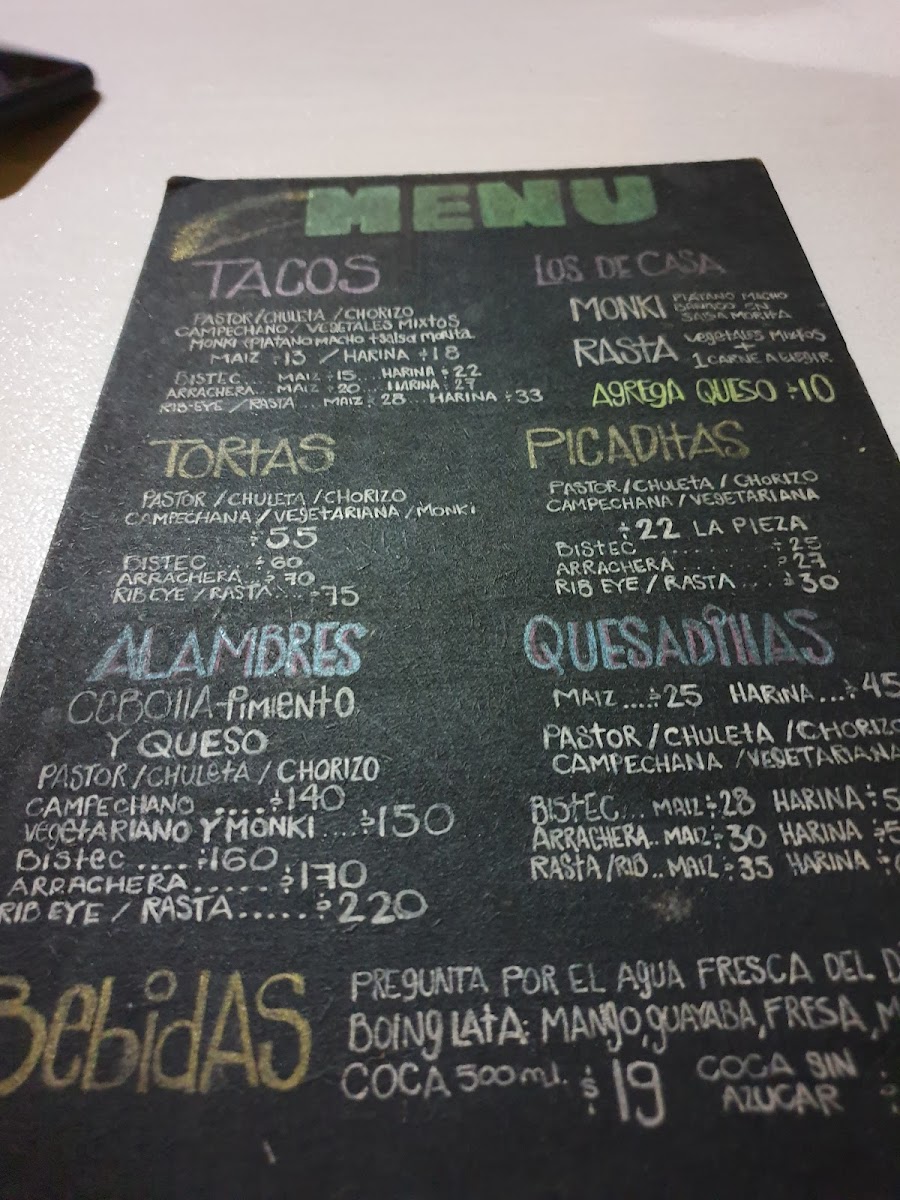 MENU
TACOS
PASTOR/CHULETA/CHORIZO
CAMPECHANO/VEGETALES MIXTOS
MONKI (PLATANO MACHO +SALSA MORITA
MAIZ $13 / HARINA $18
BISTEC... MAIZ $15... HARINA $22
ARRACHERA... MAIZ $20... HARINA $27
RIB-EYE / RASTA... MAIZ $28 HARINA $33
LOS DE CASA
MONKI PLATANO MACHO
EN
SALSA MORITA
RASTA VEGETALES MIXTOS
+
1 CARNE A ELEGIR
AGREGA QUESO $10
TORTAS
PASTOR / CHULETA / CHORIZO
CAMPECHANA / VEGETARIANA / MONKI
$55
BISTEC....... $60
ARRACHERA... $70
RIB EYE / RASTA.... $75
PICADITAS
PASTOR/CHULETA / CHORIZO
CAMPECHANA / VEGETARIANA
$22 LA PIEZA
BISTEC............ $25
ARRACHERA......... $27
RIB EYE / RASTA.... $30
ALAMBRES
CEBOLLA-PIMIENTO
Y QUESO
PASTOR/CHULETA / CHORIZO
CAMPECHANO ..... $140
VEGETARIANO Y MONKI.... $150
BISTEC ..... $160
ARRACHERA...... $170
RIB EYE / RASTA..... $220
QUESADILLAS
MAIZ ....$25 HARINA...$45
PASTOR / CHULETA / CHORIZO
CAMPECHANA / VEGETARIANA
BISTEC... MAIZ $28 HARINA $5
ARRACHERA.. MAIZ $30 HARINA $5
RASTA/RIB.. MAIZ $35 HARINA $
BEBIDAS
PREGUNTA POR EL AGUA FRESCA DEL D
BOING LATA: MANGO, GUAYABA, FRESA, M
COCA 500ml. $19 COCA SIN
AZUCAR $